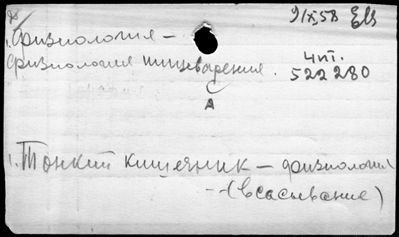 9/IX58
Физиология –
Физиология пищеварения.
чит.
522280
А
1. Тонкий кишечник – физиология
– (всасывание)